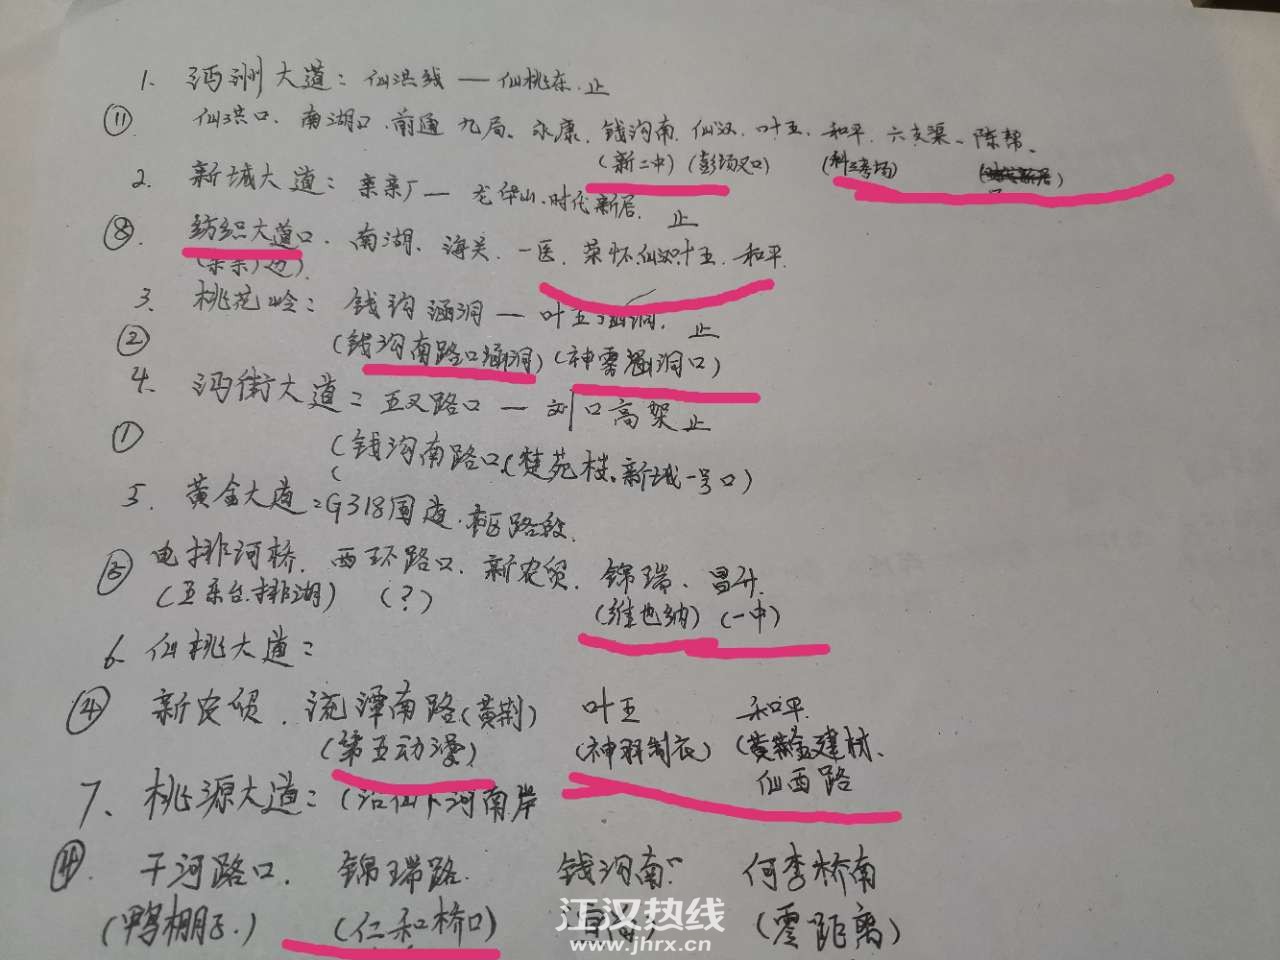 1. 沔洲大道：仙洪线 — 仙桃东.止
⑪ 仙洪口、南湖口.前通 九局、永康.钱沟南.仙汉.叶王.和平.六支渠、陈帮、
(新二中)(彭场叉口) (科三考场)
2. 新城大道：亲亲厂— 龙华山.时代新居. 止
⑧. 纺织大道口.南湖、海关、一医.荣怀.仙汉叶王.和平.
(亲亲厂边).
3. 桃花岭：钱沟涵洞 — 叶王涵洞. 止
② (钱沟南路口涵洞)(神雾涵洞口)
4. 沔街大道：五叉路口 — 刘口高架止
① (钱沟南路口(楚苑楼.新城一号口)
5. 黄金大道：G318国道.城区路段.
⑤ 电排河桥.西环路口.新农贸.锦瑞、昌升.
(王亲台.排湖) (?) (维也纳)(一中)
6. 仙桃大道：
④ 新农贸.流潭南路(黄荆) 叶王 和平.
(第五动漫) (神羽制衣) (黄金建材、
仙西路
7、桃源大道：(沿仙下河南岸
④. 干河路口. 锦瑞路. 钱沟南" 何李桥南
(鸭棚子.) (仁和桥口) (零距离)
江汉热线
www.jhrx.cn